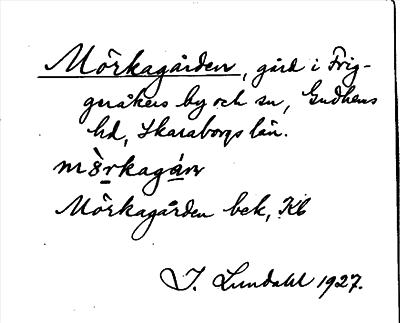 Mörkagården, gård i Frig-
gråkers by och sn, Gudhems
hd, Skaraborgs län.
mö̀rkagán
Mörkagården bek, Kb
I. Lundahl 1927.